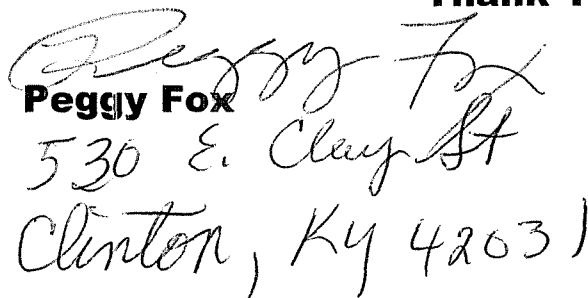 Thank
Peggy Fox
Peggy Fox
530 E. Clay St
Clinton, KY 42031